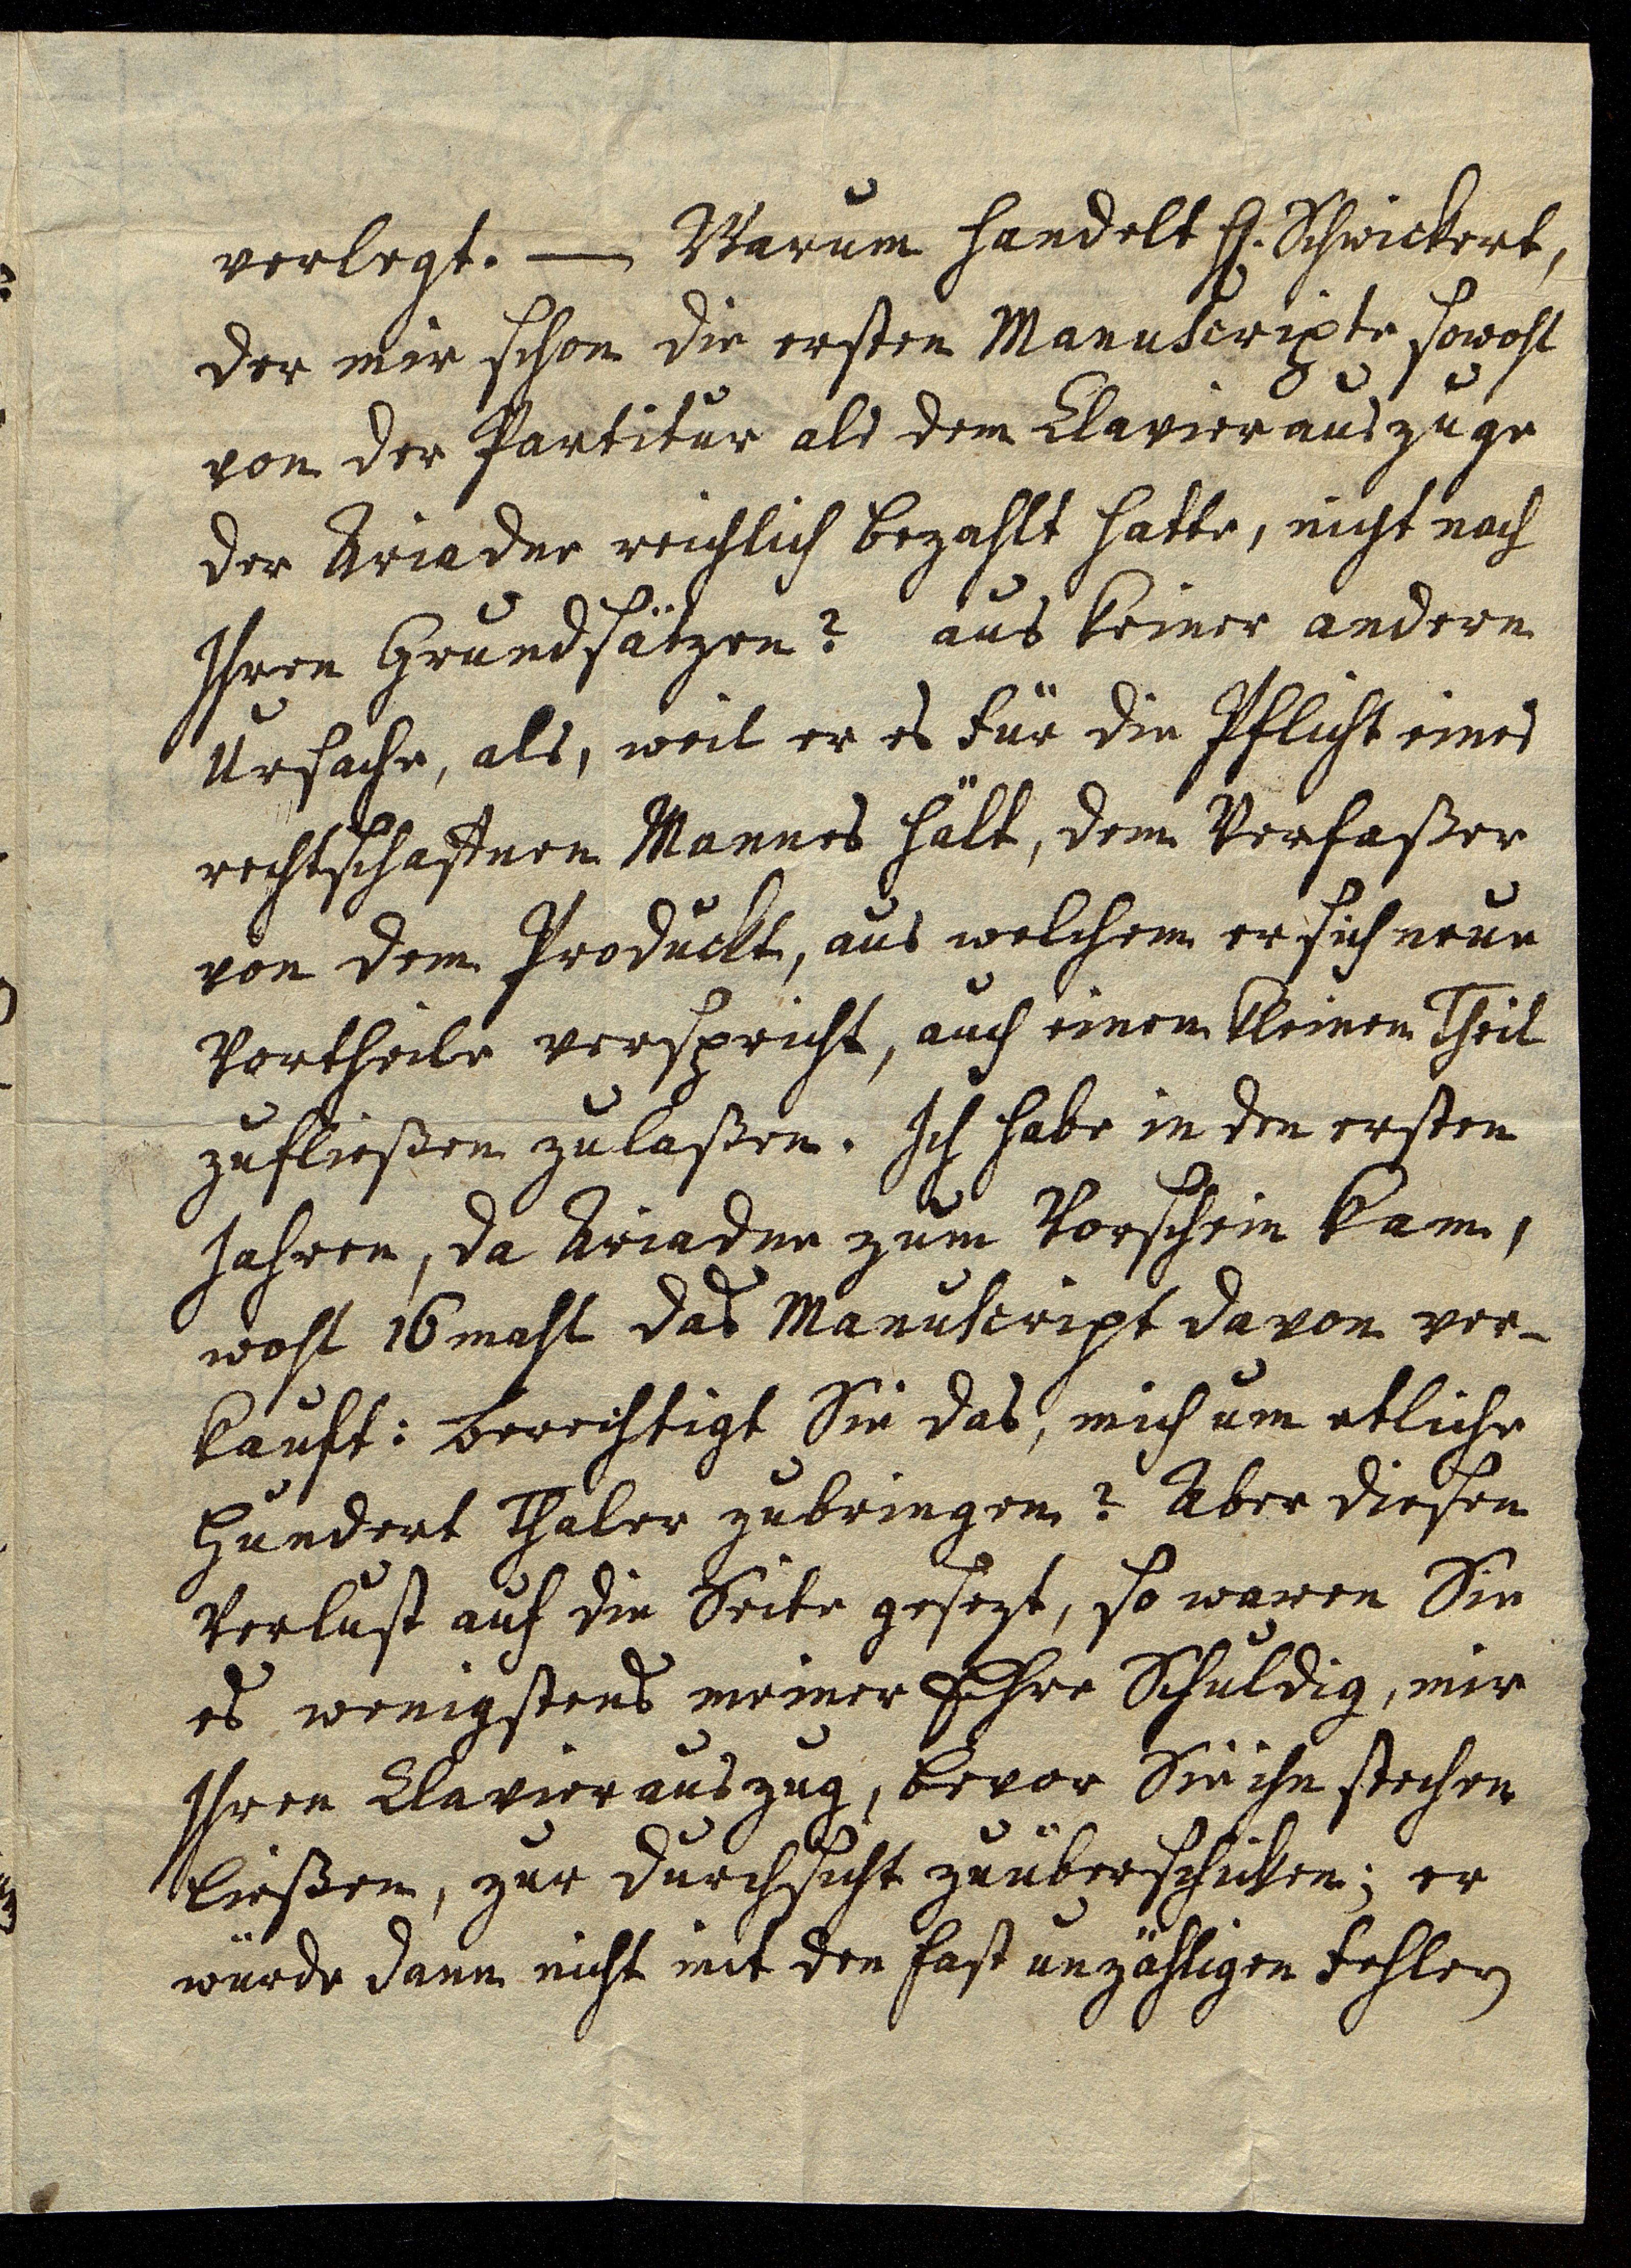 verlegt. — Warum handelt H. Schwickert,
der mir schon die ersten Manuscripte sowohl
von der Partitur als dem Clavierauszuge
der Ariadne reichlich bezahlt hatte, nicht nach
Ihren Grundsätzen? aus keiner andern
Ursache, als, weil er es für die Pflicht eines
rechtschaffnen Mannes hält, dem Verfaßer
von dem Produckt, aus welchem er sich neue
Vortheile verspricht, auch einen kleinen Theil
zufließen zulaßen. Ich habe in den ersten
Jahren, da Ariadne zum Vorschein kam,
wohl 16 mahl das Manuscript davon ver-
kauft: berechtigt Sie das, mich um etliche
Hundert Thaler zubringen? Aber diesen
Verlust auf die Seite gesezt, so waren Sie
es wenigstens meiner Ehre Schuldig, mir
Ihren Clavierauszug, bevor Sie ihn stechen
ließen, zur Durchsicht zuüberschicken; er
würde dann nicht mit den fast unzähligen Fehlern